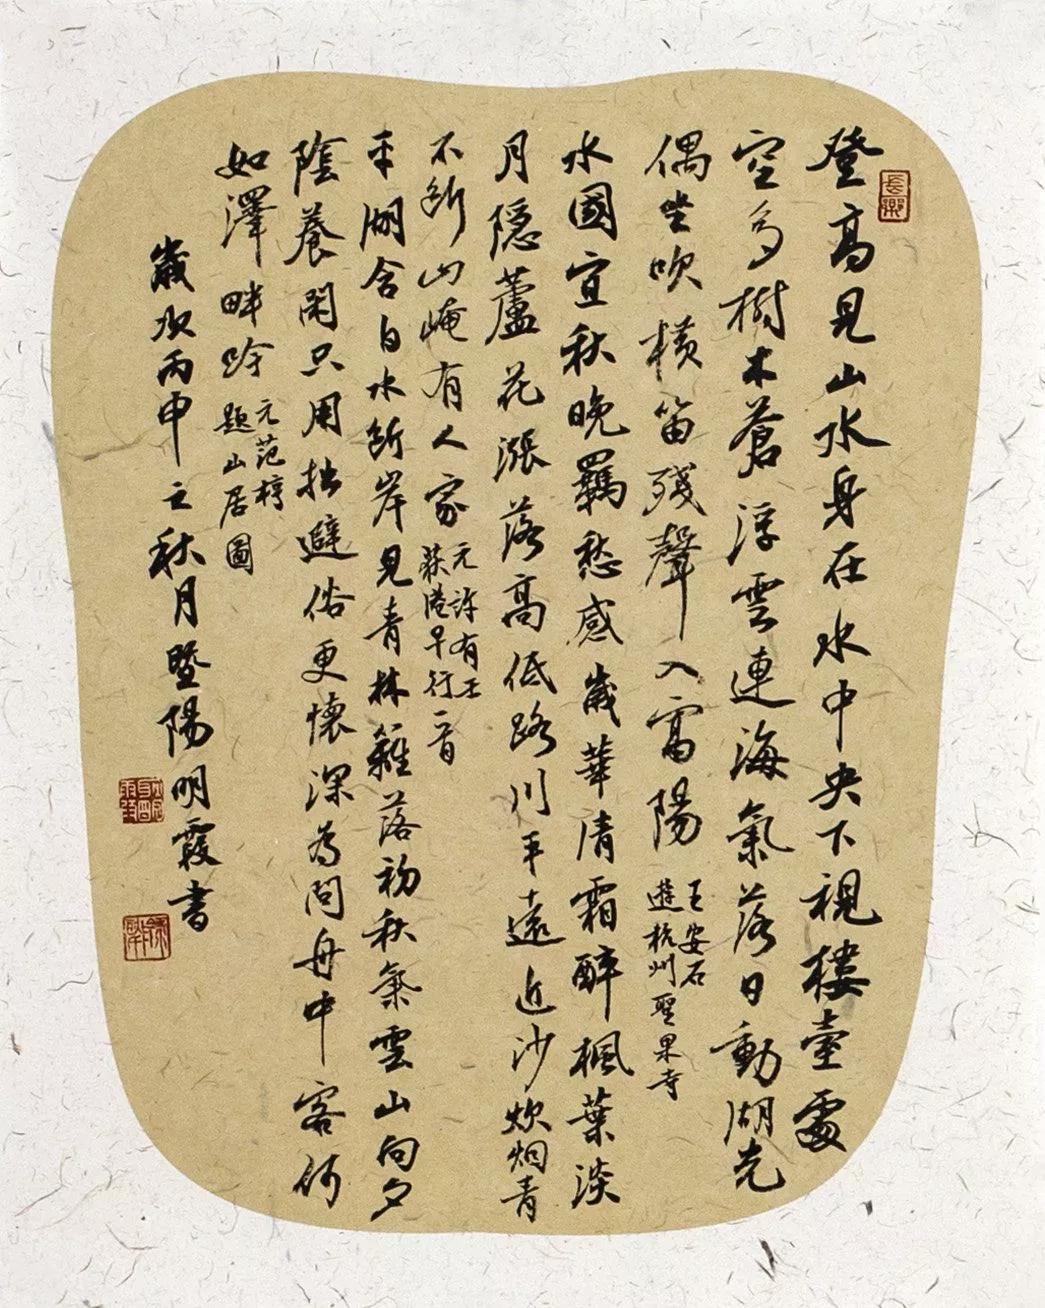 登高見山水身在水中央下視樓臺處
空多樹木蒼浮雲連海氣落日動湖光
偶坐吹橫笛殘聲入富陽
王安石
遊杭州聖果寺
水國宜秋晚羈愁感歲華清霜醉楓葉淡
月隱蘆花漲落高低路川平遠近沙炊烟青
不斷山崦有人家
元許有壬
荻港早行
平湖含白水斷岸見青林籬落初秋氣雲山向夕
陰養閑只用拙避俗更懷深為問舟中客何
如澤畔吟
元范梈
題山居圖
歲次丙申之秋月暨陽明霞書
長樂